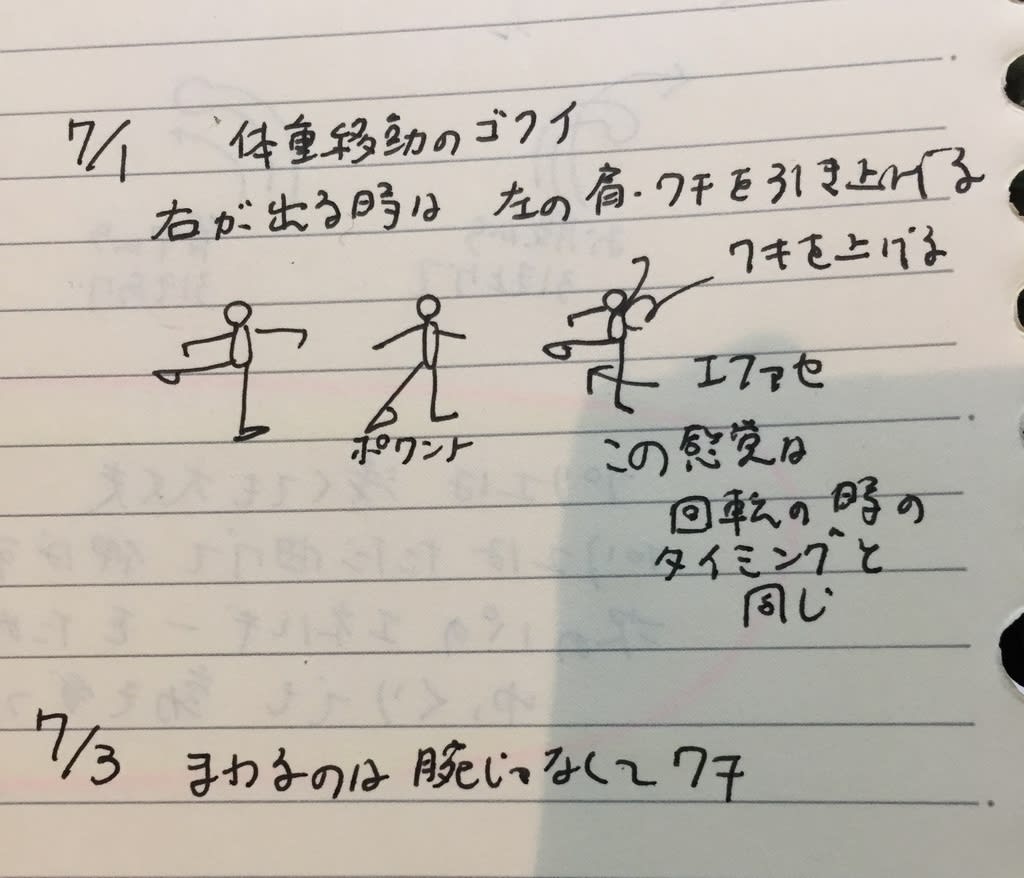 7/1 体重移動のゴフイ
右が出る時は 左の肩・ワキを引き上げる
ワキを上げる
エファセ
ポワント
この感覚は
回転の時の
タイミングと
同じ
7/3 まわるのは腕じゃなくてワキ